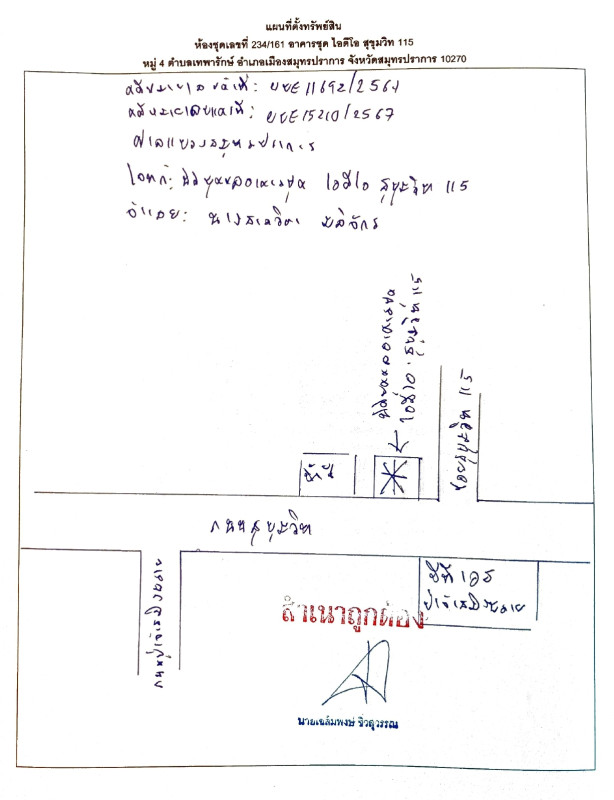 แผนที่ตั้งทรัพย์สิน
ห้องชุดเลขที่ 234/161 อาคารชุด ไอดีโอ สุขุมวิท 115
หมู่ 4 ตำบลเทพารักษ์ อำเภอเมืองสมุทรปราการ จังหวัดสมุทรปราการ 10270
หมายเลขคดีดำที่: ผบE11692/2567
หมายเลขคดีแดงที่: ผบE15210/2567
ศาลแขวงสมุทรปราการ
โจทก์: นิติบุคคลอาคารชุด ไอดีโอ สุขุมวิท 115
จำเลย: นาง
นิติบุคคลอาคารชุด
ไอดีโอ สุขุมวิท 115
ซอยสุขุมวิท 115
ถนนสุขุมวิท
บีทีเอส
ปู่เจ้าสมิงพราย
ถนนปู่เจ้าสมิงพราย
สำเนาถูกต้อง
นายเฉลิมพงษ์ จิวสุวรรณ